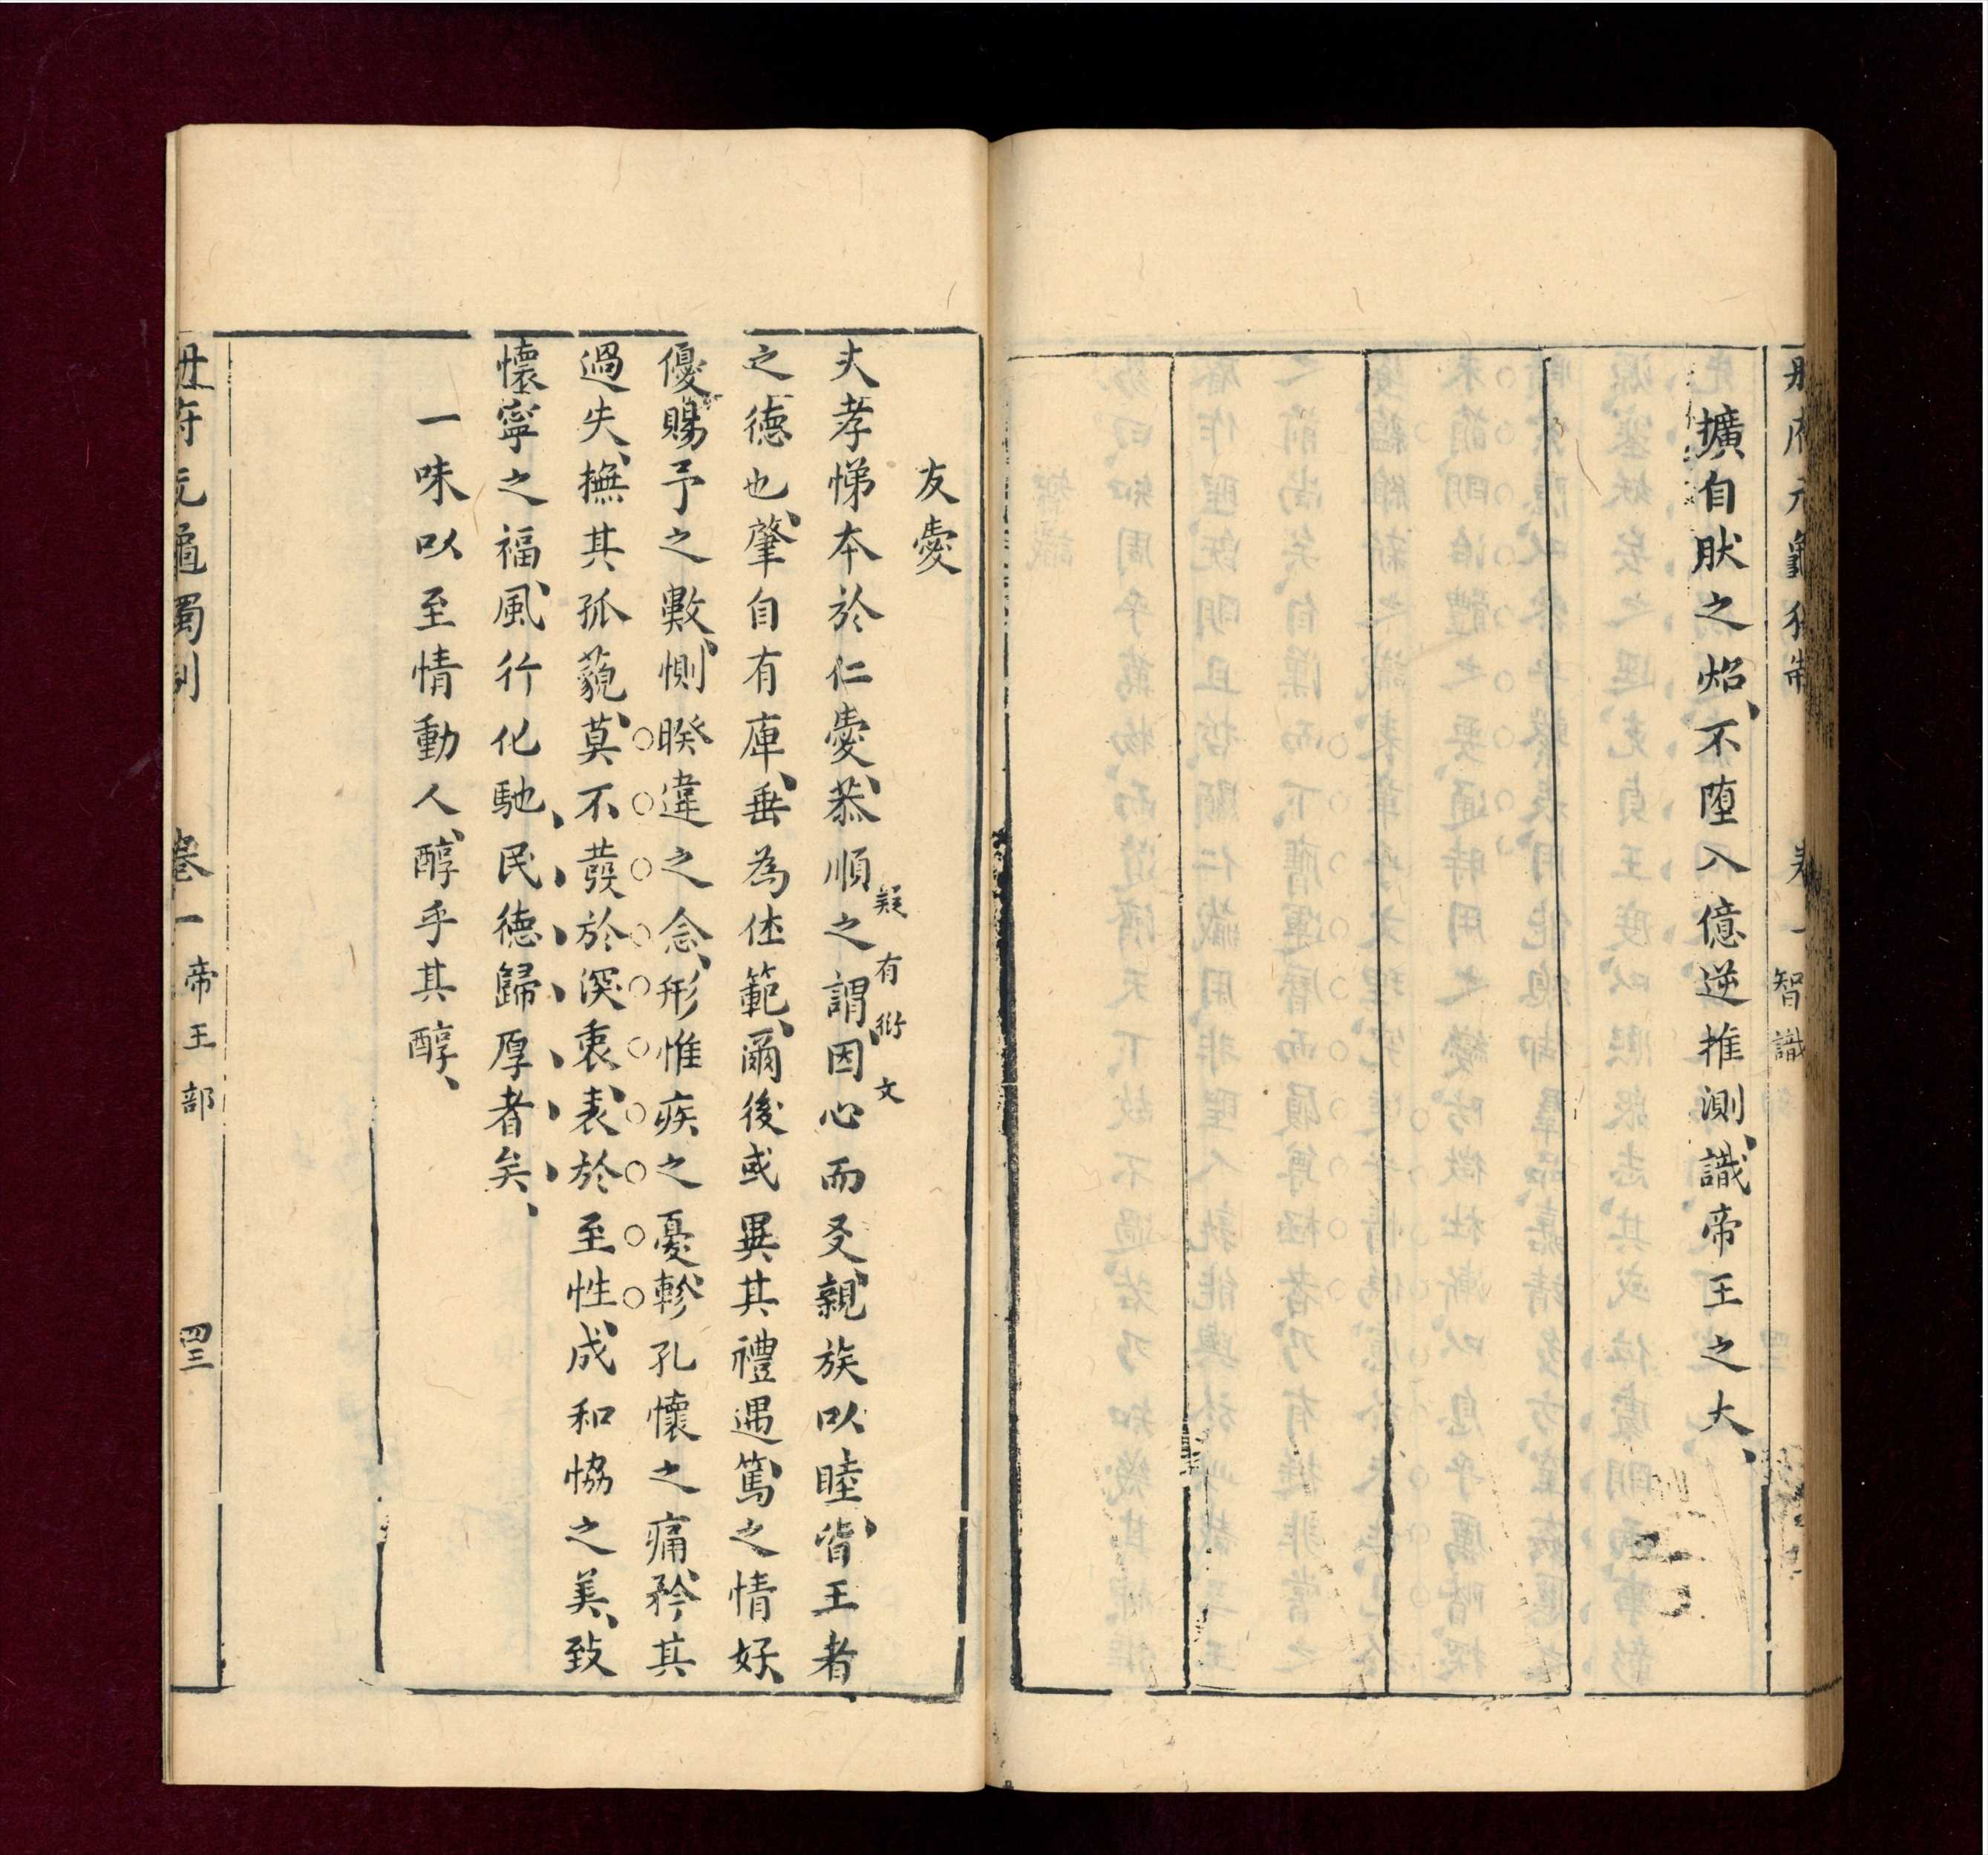 冊府元龜獨制 卷一 智識
擴自肰之炤、不墮入億逆推測、識帝王之大、
友愛
夫孝悌本於仁愛、恭順之謂、因心而爻親、族以睦、皆王者、
疑有衍文
之德也、肇自有庳、垂為佳範、爾後或異其禮遇、篤之情好、
優賜予之數、惻暌違之念、形惟疾之憂、軫孔懷之痛、矜其
過失、撫其孤藐、莫不發於深衷、表於至性、成和恊之美、致
懷寧之福、風行化馳、民德歸厚者矣、
一味以至情動人、醇乎其醇、
冊府元龜獨制 卷一 帝王部 四三